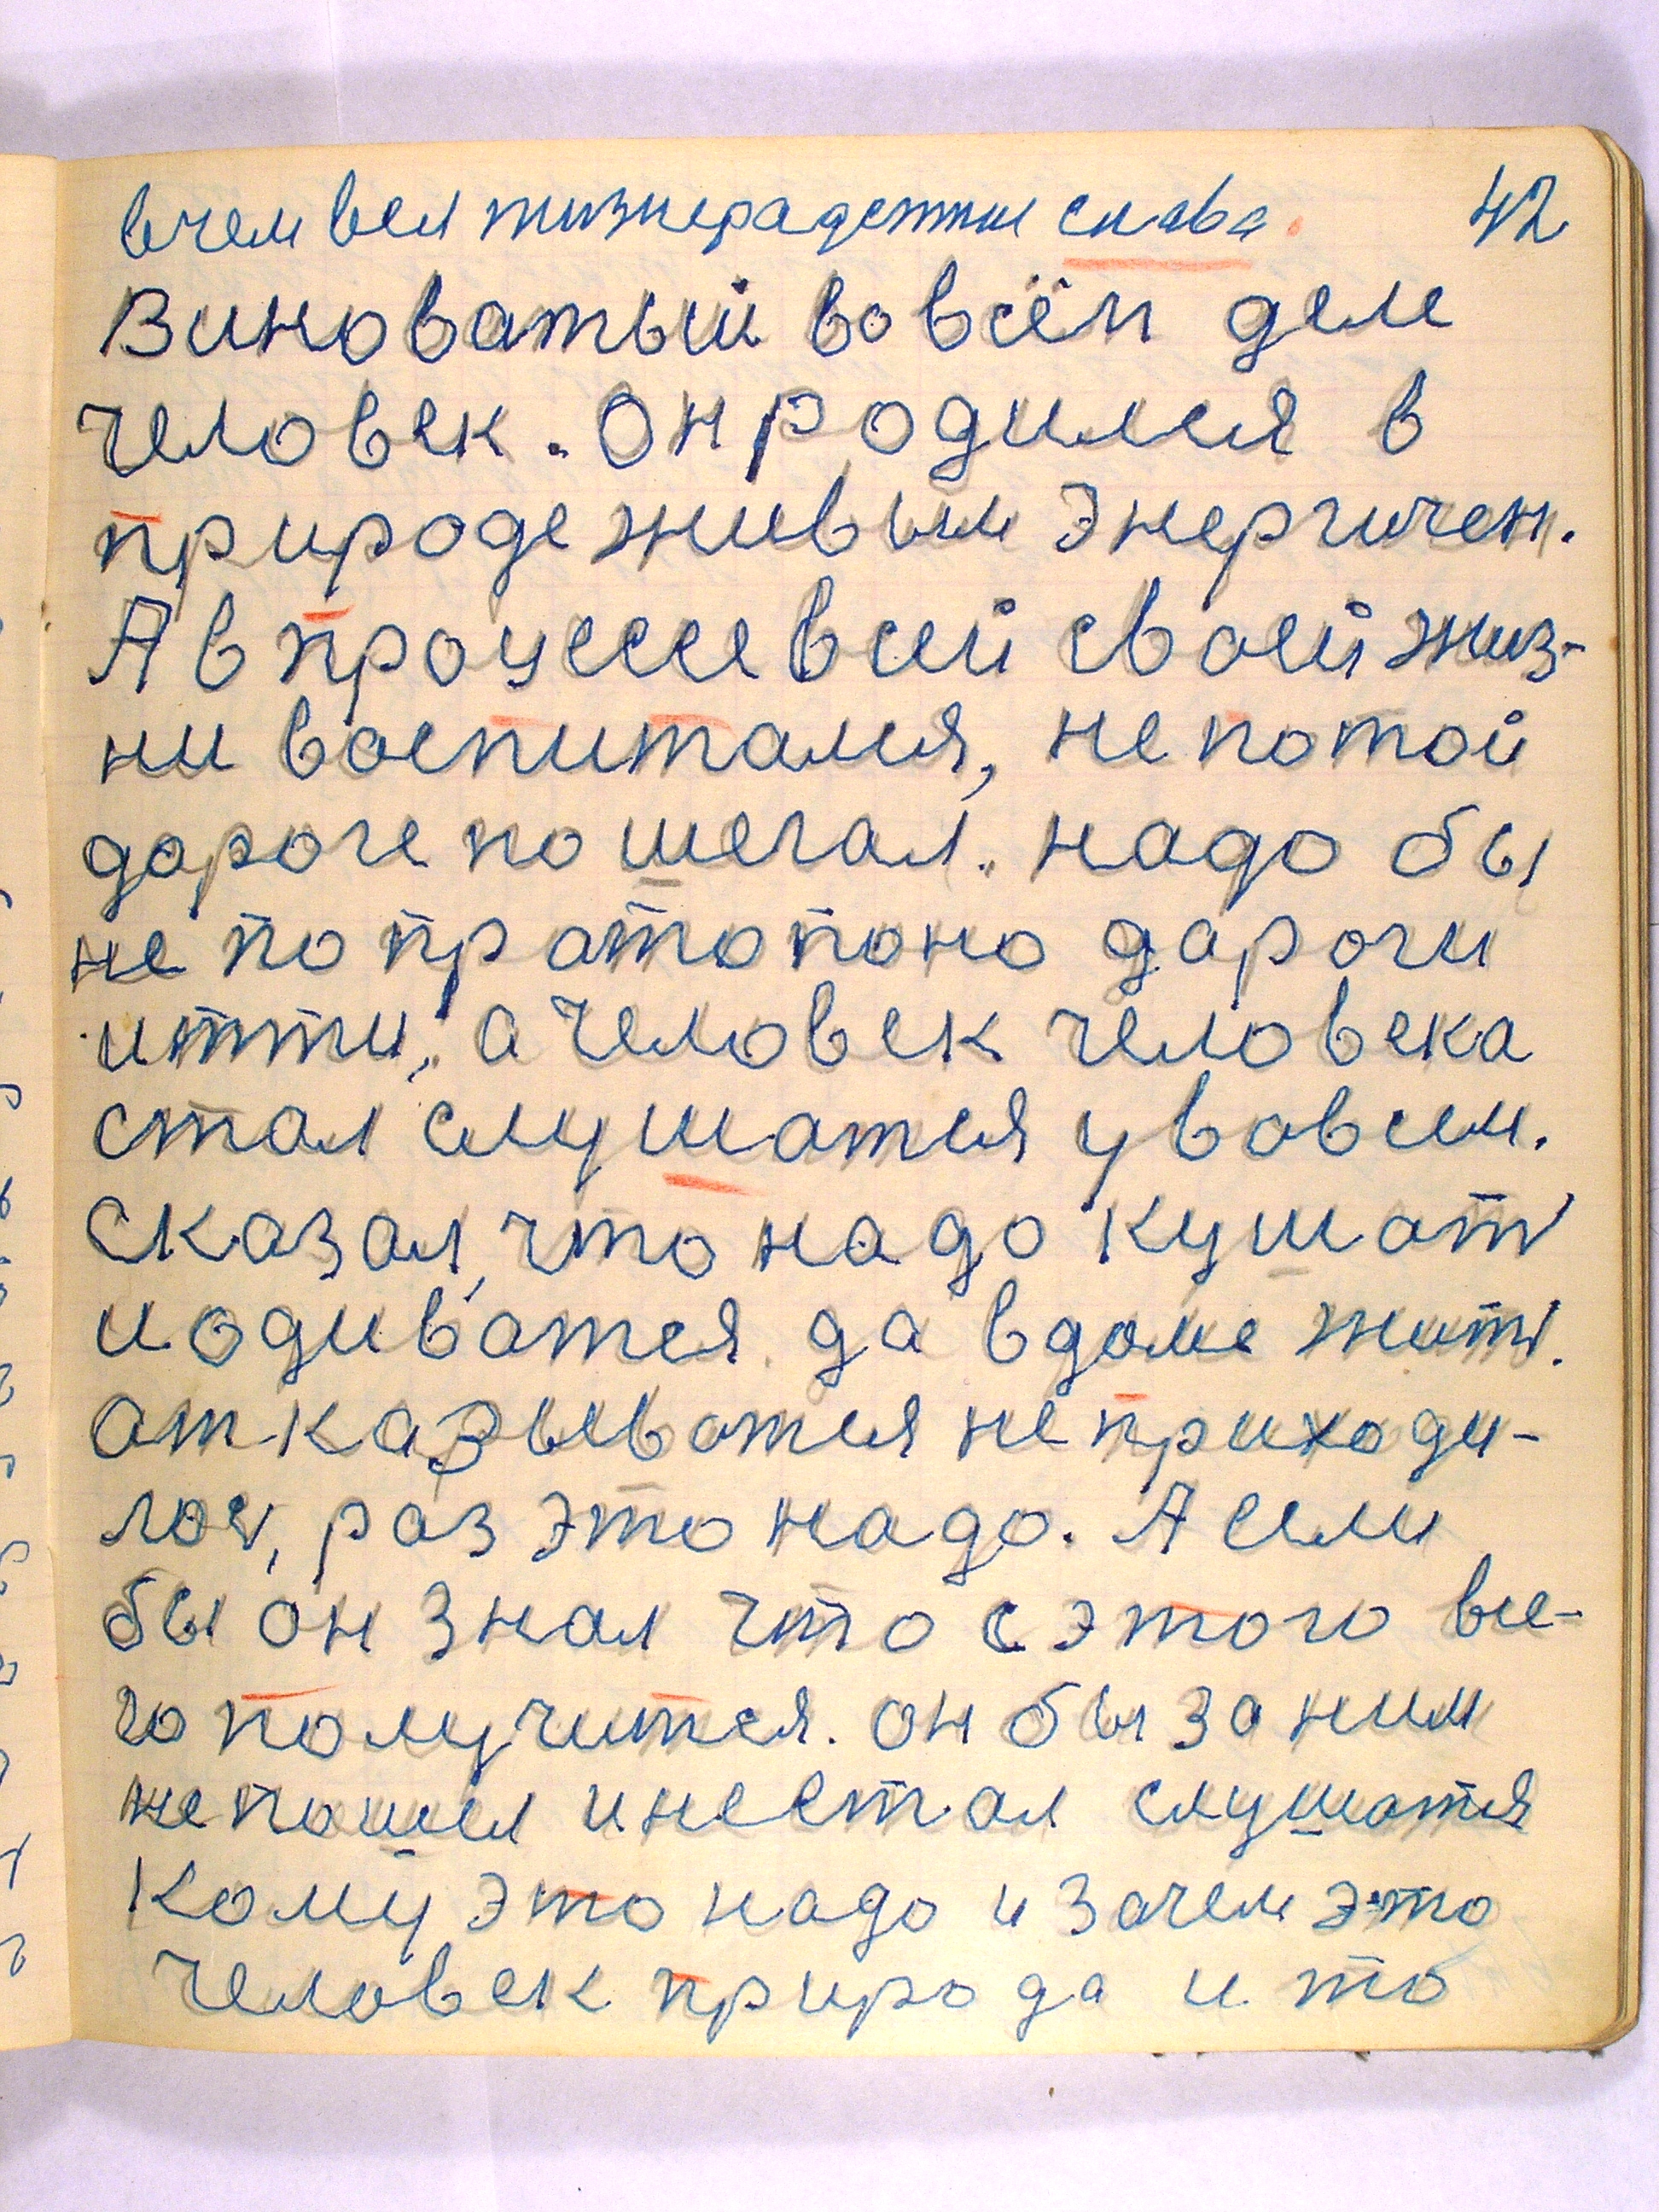 в чем вся жизнерадостная слава. 42
Виноватый во всём деле
человек. Он родился в
природе живым энергичен.
А в процессе всей своей жиз-
ни воспитался, не по той
дороге по шегал. надо бы
не по пратопоно дароги
итти, а человек человека
стал слушатся ув овсем.
Сказал, что надо кушать
и одиватся да в доме жить.
отказыватся не приходи-
лось, раз это надо. А если
бы он знал что с этого все-
го получится. он бы за ним
не пошел и не стал слушатся
Кому это надо и зачем это
человек природа и то